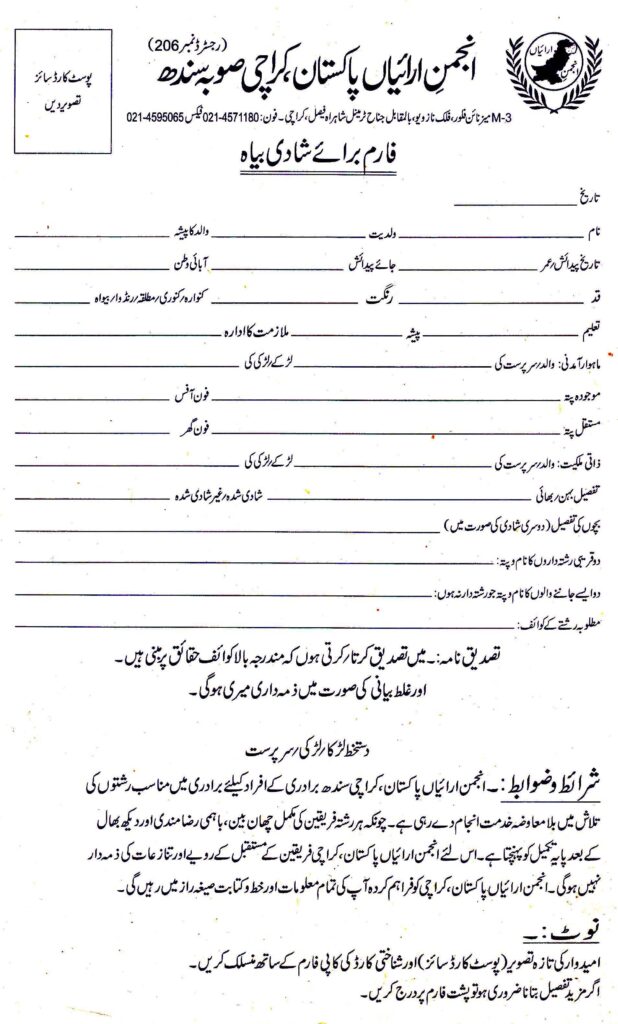 پوسٹ کارڈ سائز
تصویر دیں
(رجسٹرڈ نمبر 206)
انجمنِ ارائیاں پاکستان، کراچی صوبہ سندھ
ارائیاں
انجمن
M-3 میزنائن فلور، فلک ناز ویو، بالمقابل جناح ٹرمینل شاہراہ فیصل، کراچی۔ فون: 4571180-021 فیکس 4595065-021
فارم برائے شادی بیاہ
تاریخ
نام ولدیت والد کا پیشہ
تاریخ پیدائش/عمر جائے پیدائش آبائی وطن
قد رنگت کنوارہ/کنوری/مطلقہ/رنڈوا/بیواہ
تعلیم پیشہ ملازمت کا ادارہ
ماہوار آمدنی: والد/سرپرست کی لڑکے/لڑکی کی
موجودہ پتہ فون آفس
مستقل پتہ فون گھر
ذاتی ملکیت: والد/سرپرست کی لڑکے/لڑکی کی
تفصیل بہن/بھائی شادی شدہ/غیر شادی شدہ
بچوں کی تفصیل (دوسری شادی کی صورت میں)
دو قریبی رشتہ داروں کا نام و پتہ:
دو ایسے جاننے والوں کا نام و پتہ جو رشتہ دار نہ ہوں:
مطلوبہ رشتے کے کوائف:
تصدیق نامہ:۔ میں تصدیق کرتا/کرتی ہوں کہ مندرجہ بالا کوائف حقائق پر مبنی ہیں۔
اور غلط بیانی کی صورت میں ذمہ داری میری ہوگی۔
دستخط لڑکا/لڑکی/سرپرست
شرائط وضوابط:۔ انجمن ارائیاں پاکستان، کراچی سندھ برادری کے افراد کیلئے برادری میں مناسب رشتوں کی
تلاش میں بلا معاوضہ خدمت انجام دے رہی ہے۔ چونکہ ہر رشتہ فریقین کی مکمل چھان بین، باہمی رضا مندی اور دیکھ بھال
کے بعد پایہ تکمیل کو پہنچتا ہے۔ اس لئے انجمن ارائیاں پاکستان، کراچی فریقین کے مستقبل کے رویے اور تنازعات کی ذمہ دار
نہیں ہوگی۔ انجمن ارائیاں پاکستان، کراچی کو فراہم کردہ آپ کی تمام معلومات اور خط و کتابت صیغہ راز میں رہیں گی۔
نوٹ:۔
امیدوار کی تازہ تصویر (پوسٹ کارڈ سائز) اور شناختی کارڈ کی کاپی فارم کے ساتھ منسلک کریں۔
اگر مزید تفصیل بتانا ضروری ہو تو پشت فارم پر درج کریں۔